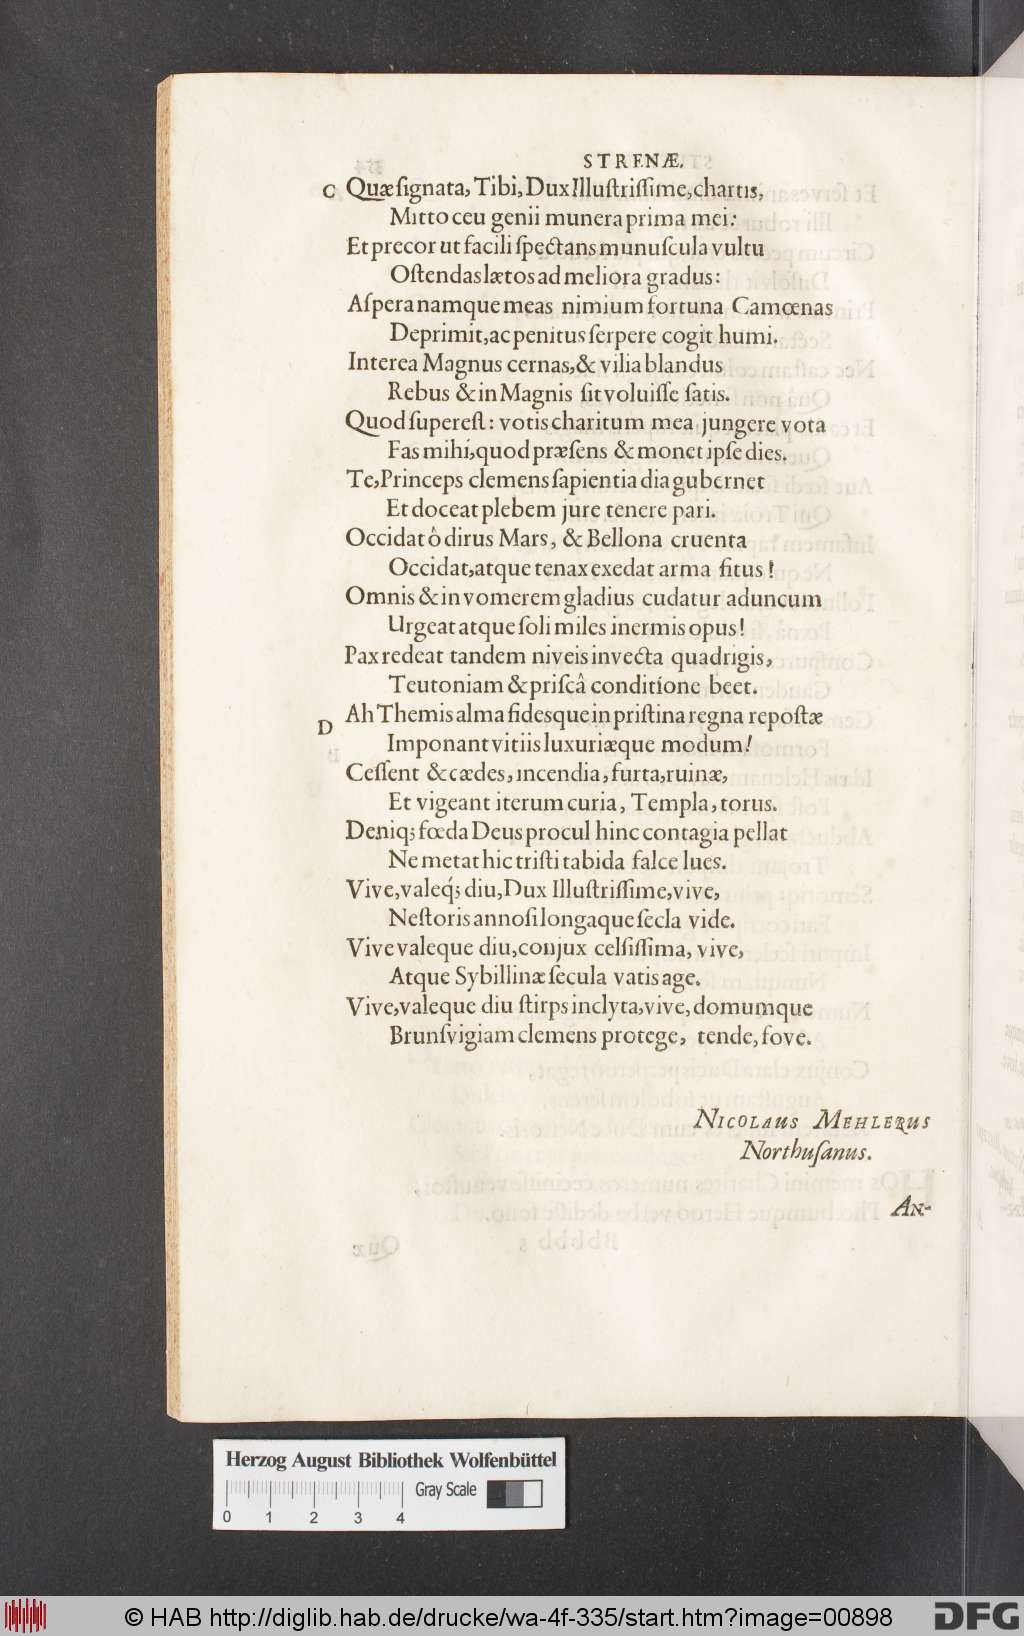 STRENÆ.
C Quæ ſignata, Tibi, Dux Illuſtriſſime, chartis,
Mitto ceu genii munera prima mei:
Et precor ut facili ſpectans munuſcula vultu
Oſtendas lætos ad meliora gradus:
Aſpera namque meas nimium fortuna Camœnas
Deprimit, ac penitus ſerpere cogit humi.
Interea Magnus cernas, & vilia blandus
Rebus & in Magnis ſit voluiſſe ſatis.
Quod ſupereſt: votis charitum mea jungere vota
Fas mihi, quod præſens & monet ipſe dies.
Te, Princeps clemens ſapientia dia gubernet
Et doceat plebem jure tenere pari.
Occidat ô dirus Mars, & Bellona cruenta
Occidat, atque tenax exedat arma ſitus!
Omnis & in vomerem gladius cudatur aduncum
Urgeat atque ſoli miles inermis opus!
Pax redeat tandem niveis invecta quadrigis,
Teutoniam & priſcâ conditione beet.
D Ah Themis alma fidesque in priſtina regna repoſtæ
Imponant vitiis luxuriæque modum!
Ceſſent & cædes, incendia, furta, ruinæ,
Et vigeant iterum curia, Templa, torus.
Deniq; fœda Deus procul hinc contagia pellat
Ne metat hic triſti tabida falce lues.
Vive, valeq́; diu, Dux Illuſtriſſime, vive,
Neſtoris annoſi longaque ſecla vide.
Vive valeque diu, conjux celſiſſima, vive,
Atque Sybillinæ ſecula vatis age.
Vive, valeque diu ſtirps inclyta, vive, domumque
Brunſvigiam clemens protege, tende, fove.
NICOLAUS MEHLERUS
Northuſanus.
AN-
Herzog August Bibliothek Wolfenbüttel
Gray Scale
0 1 2 3 4
© HAB http://diglib.hab.de/drucke/wa-4f-335/start.htm?image=00898
DFG